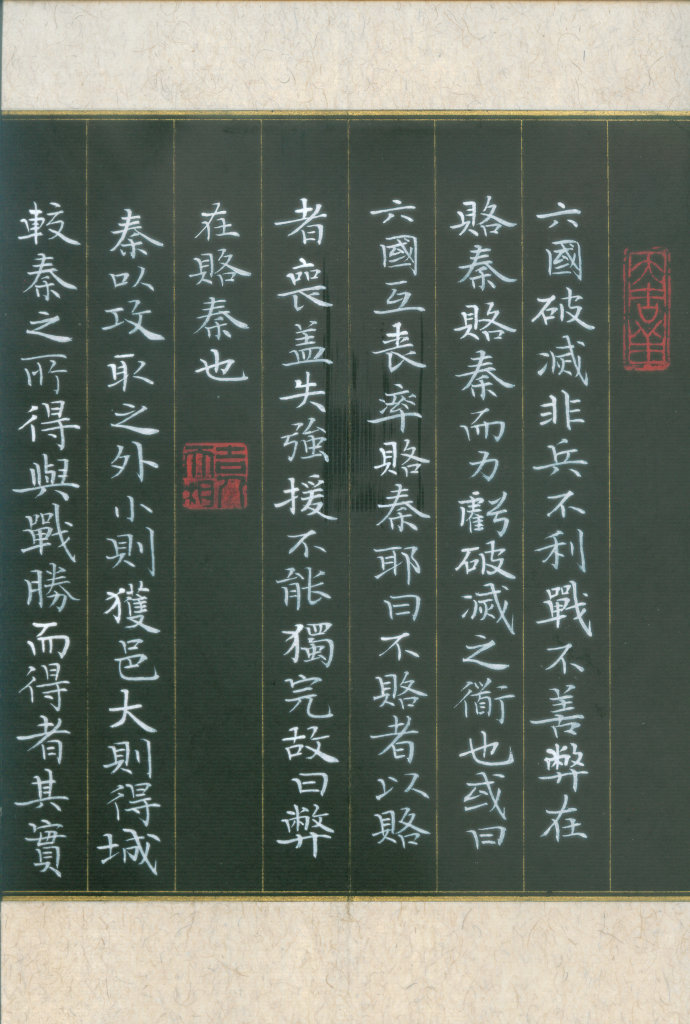 六國破滅非兵不利戰不善弊在
賂秦賂秦而力虧破滅之衜也或曰
六國互喪率賂秦耶曰不賂者以賂
者喪盖失強援不能獨完故曰弊
在賂秦也
秦以攻取之外小則獲邑大則得城
較秦之所得與戰勝而得者其實